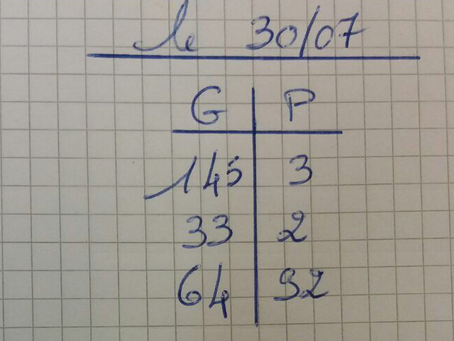 le 30/07
G P
145 3
33 2
64 92